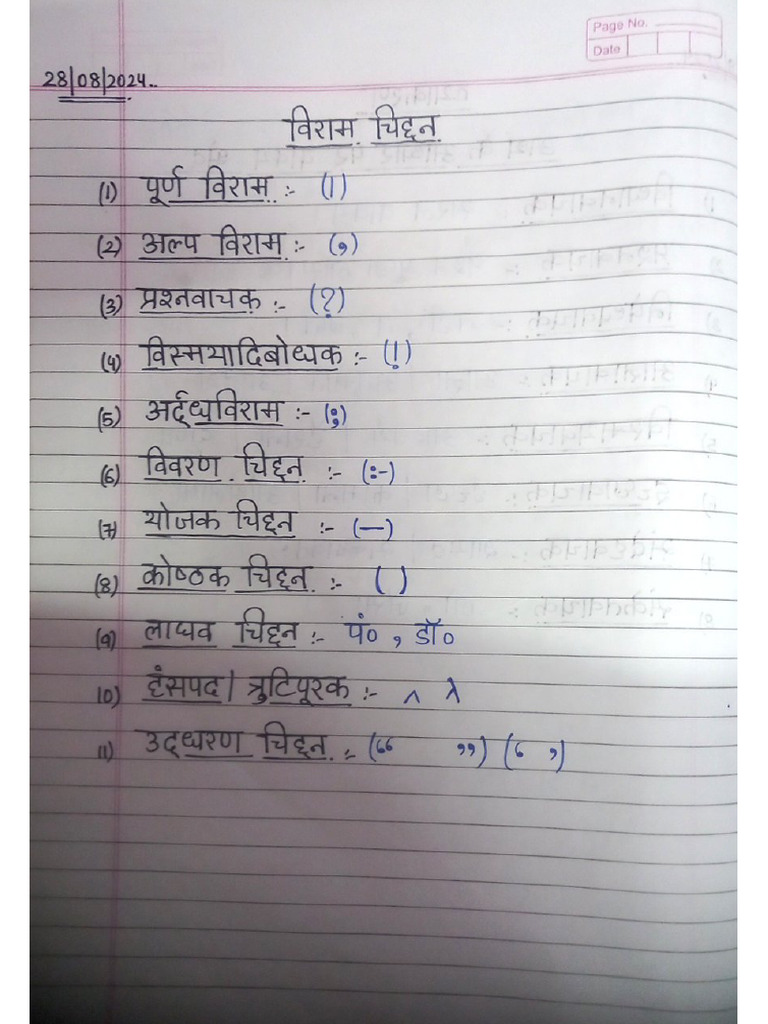 Page No.
Date
28/08/2024..
विराम चिह्न
(1) पूर्ण विराम :- (।)
(2) अल्प विराम :- (,)
(3) प्रश्नवाचक :- (?)
(4) विस्मयादिबोधक :- (!)
(5) अर्द्धविराम :- (;)
(6) विवरण चिह्न :- (:-)
(7) योजक चिह्न :- (—)
(8) कोष्ठक चिह्न :- ( )
(9) लाघव चिह्न :- पं० , डॉ०
10) हंसपद / त्रुटिपूरक :- ^ λ
11) उद्धरण चिह्न :- (“ ”) (‘ ’)